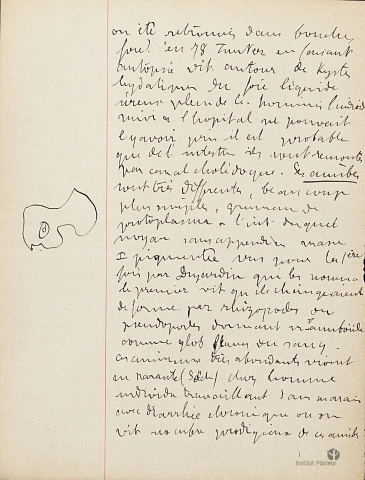 ont été retrouvés dans bouche,
foie? en 78 Junker en faisant
autopsie vit autour de Kystes
hydatiques du foie liquide
séreux plein de l. hominis l'individu
mort à l'hopital ne pouvait
y avoir il est probable
que de l'intestin ils sont remontés
par canal cholédoque. Les amibes
sont très différentes, beaucoup
plus simples, grumeau de
protoplasma à l'int. duquel
noyau sans appendices masse
pigmentée vus pour la 1ère
fois par Dujardin qui les nomma
le premier vit qu'ils changeaient
de forme par rhizopodes ou
pseudopodes donnant mt amiboïde
comme glob blancs du sang.
Ces animaux très abondants vivent
en marais chez homme
individu travaillant dans marais
avec diarrhée chronique où on
vit nombre prodigieux de ces amibes
Institut Pasteur